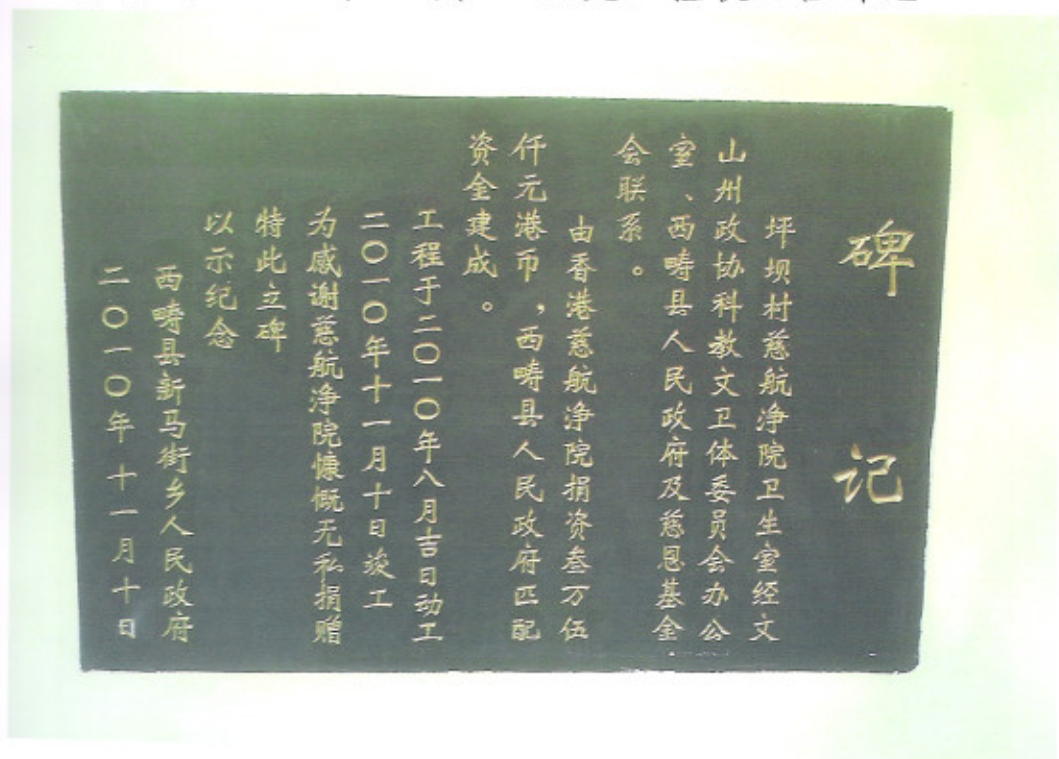 碑记
坪坝村慈航净院卫生室经文
山州政协科教文卫体委员会办公
室、西畴县人民政府及慈恩基金
会联系。
由香港慈航净院捐资叁万伍
仟元港币，西畴县人民政府匹配
资金建成。
工程于二〇一〇年八月吉日动工
二〇一〇年十一月十日竣工
为感谢慈航净院慷慨无私捐赠
特此立碑
以示纪念
西畴县新马街乡人民政府
二〇一〇年十一月十日